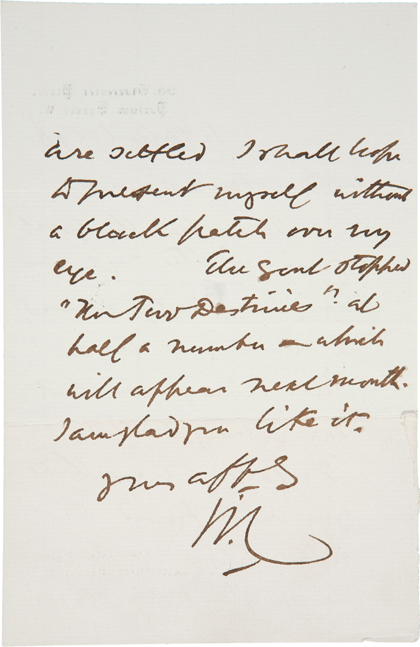 are settled I shall hope
to present myself without
a black patch over my
eye. The gout stopped
"The Two Destinies" at
half a number – which
will appear next month.
I am glad you like it.
Yours affly
W.C.